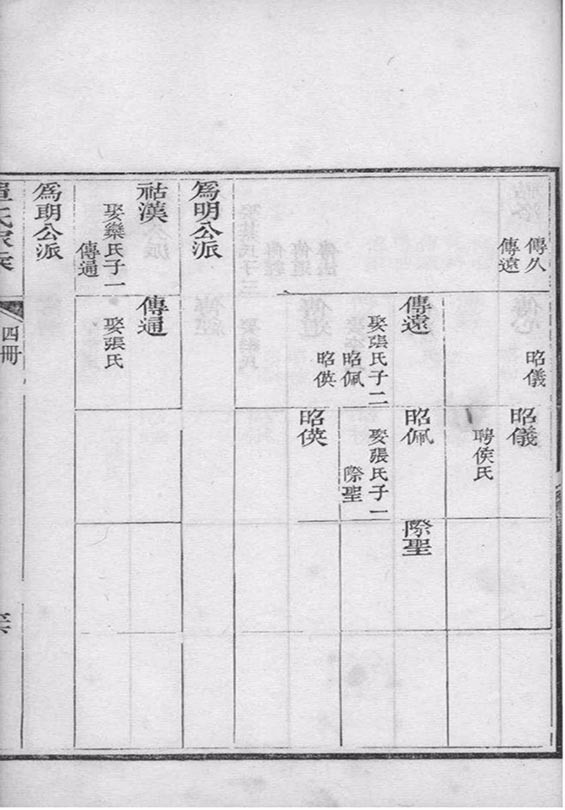 傳久
傳遠
昭儀
昭儀
聘侯氏
傳遠
娶張氏子二
昭佩
昭偀
昭佩
娶張氏子一
際聖
際聖
昭偀
爲明公派
祜漢
娶欒氏子一
傳通
傳通
娶張氏
爲明公派
四冊